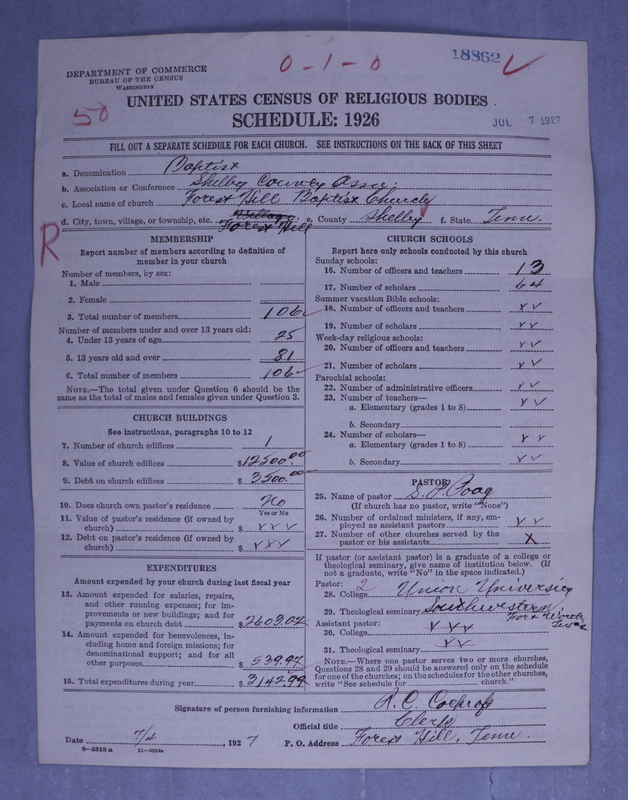 DEPARTMENT OF COMMERCE
BUREAU OF THE CENSUS
WASHINGTON
0-1-0
18862
50
UNITED STATES CENSUS OF RELIGIOUS BODIES
SCHEDULE: 1926
JUL 7 1927
FILL OUT A SEPARATE SCHEDULE FOR EACH CHURCH. SEE INSTRUCTIONS ON THE BACK OF THIS SHEET
a. Denomination Baptist
b. Association or Conference Shelby County Assn.
c. Local name of church Forest Hill Baptist Church
d. City, town, village, or township, etc. Village Forest Hill e. County Shelby f. State Tenn.
R
MEMBERSHIP
Report number of members according to definition of
member in your church
Number of members, by sex:
1. Male
2. Female
3. Total number of members 106
Number of members under and over 13 years old:
4. Under 13 years of age 25
5. 13 years old and over 81
6. Total number of members 106
NOTE.—The total given under Question 6 should be
the same as the total of males and females given under Question 3.
CHURCH BUILDINGS
See instructions, paragraphs 10 to 12
7. Number of church edifices 1
8. Value of church edifices $12500.00
9. Debt on church edifices $3500.00
10. Does church own pastor's residence No
Yes or No
11. Value of pastor's residence (if owned by
church) $ vvv
12. Debt on pastor's residence (if owned by
church) $ vvv
EXPENDITURES
Amount expended by your church during last fiscal year
13. Amount expended for salaries, repairs,
and other running expenses; for im-
provements or new buildings; and for
payments on church debt $2603.02
14. Amount expended for benevolences, in-
cluding home and foreign missions; for
denominational support; and for all
other purposes $539.97
15. Total expenditures during year $3142.99
CHURCH SCHOOLS
Report here only schools conducted by this church
Sunday schools:
16. Number of officers and teachers 13
17. Number of scholars 64
Summer vacation Bible schools:
18. Number of officers and teachers vv
19. Number of scholars vv
Week-day religious schools:
20. Number of officers and teachers vv
21. Number of scholars vv
Parochial schools:
22. Number of administrative officers vv
23. Number of teachers—
a. Elementary (grades 1 to 8) vv
b. Secondary
24. Number of scholars—
a. Elementary (grades 1 to 8) vv
b. Secondary vv
PASTOR
25. Name of pastor Poag
(If church has no pastor, write "None")
26. Number of ordained ministers, if any, em-
ployed as assistant pastors vv
27. Number of other churches served by the
pastor or his assistants x
If pastor (or assistant pastor) is a graduate of a college or
theological seminary, give name of institution below. (If
not a graduate, write "No" in the space indicated.)
Pastor: 2
28. College Union University
29. Theological seminary Southwestern, Fort Worth Texas
Assistant pastor:
30. College vvv
31. Theological seminary vv
NOTE.—Where one pastor serves two or more churches,
Questions 28 and 29 should be answered only on the schedule
for one of the churches; on the schedules for the other churches,
write "See schedule for church."
Signature of person furnishing information R. C.
Official title Clerk
Date 7/4, 1927 P. O. Address Forest Hill, Tenn.
8-5318 a